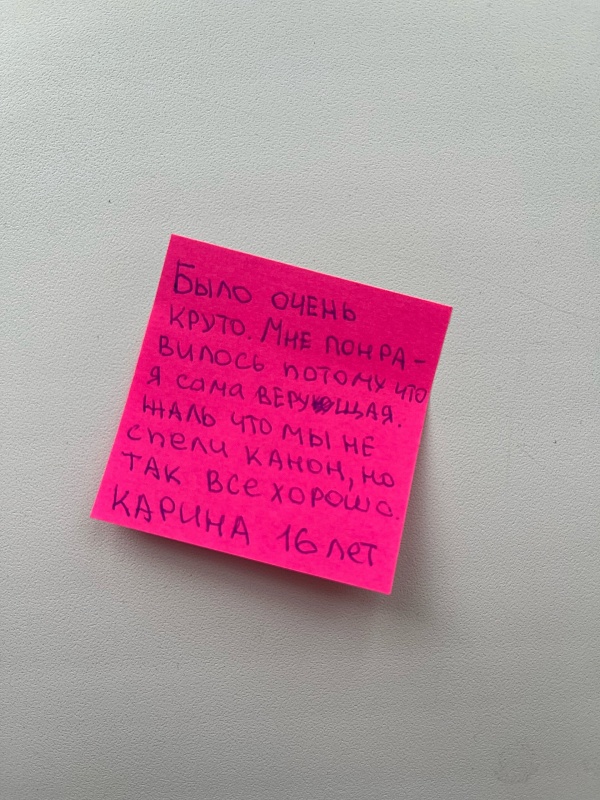 Было очень
круто. Мне понра-
вилось потому что
я сама верующая.
Жаль что мы не
спели канон, но
так все хорошо.
Карина 16 лет